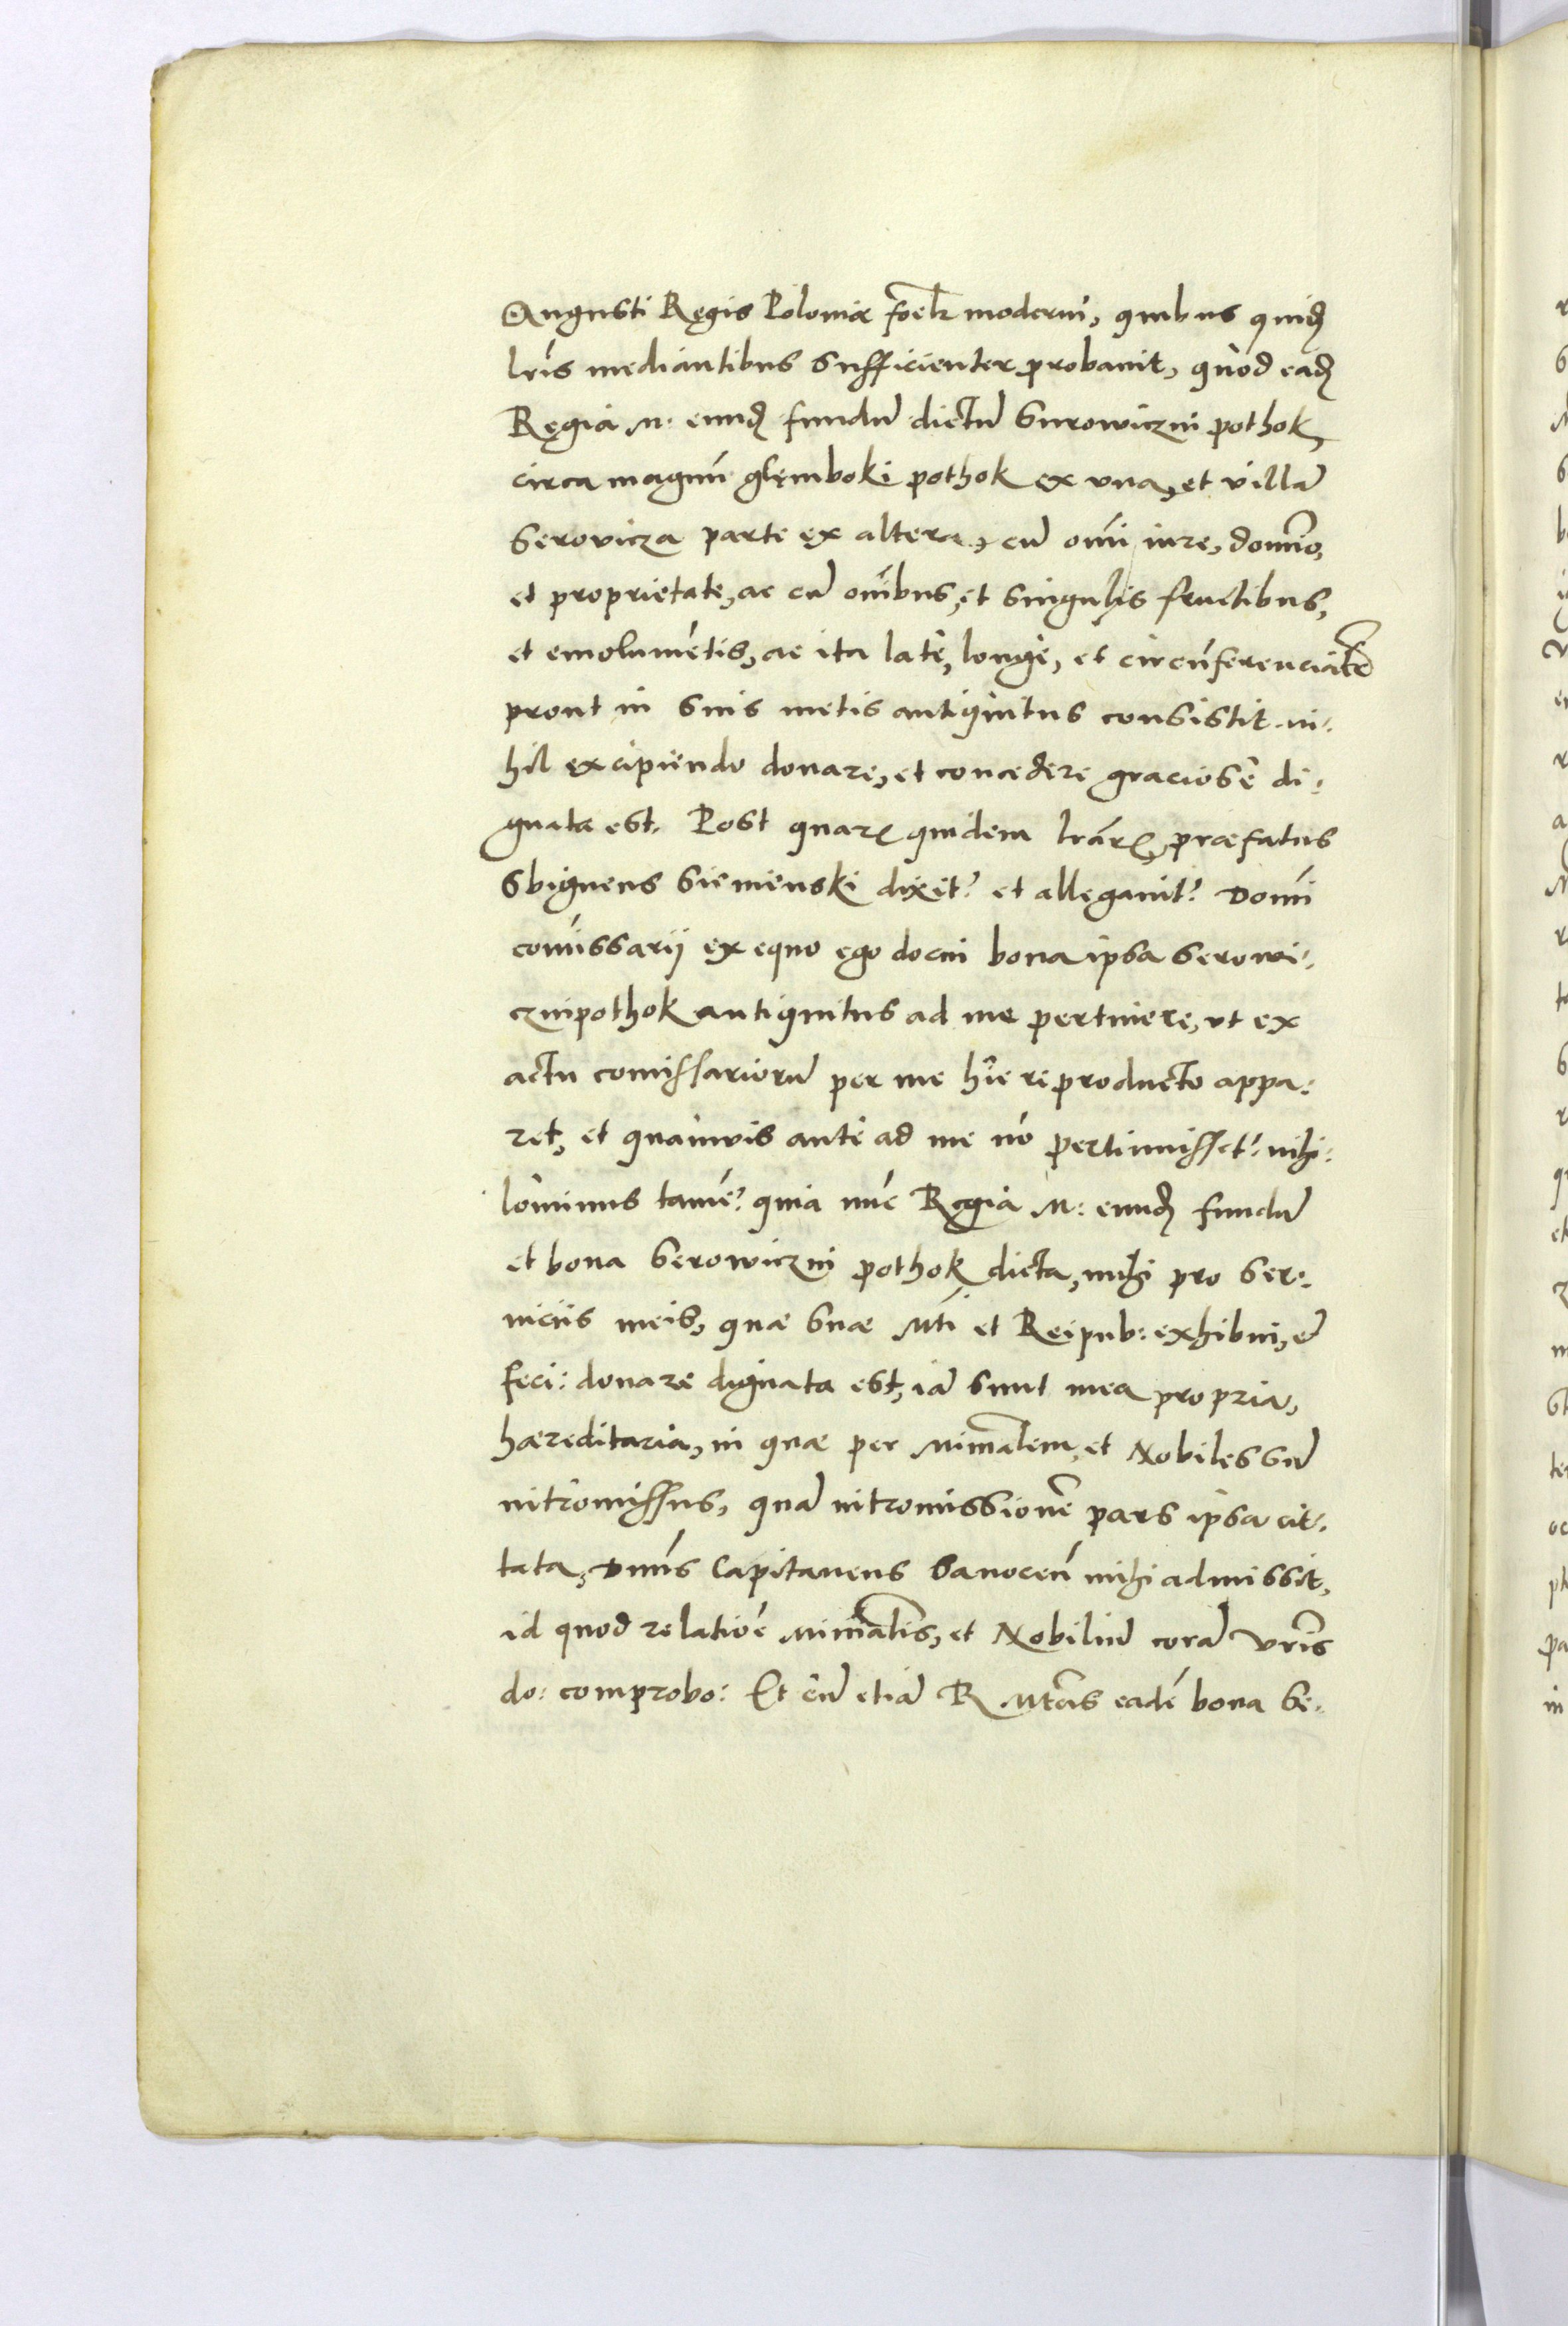 Augusti Regis Poloniæ fœlr moderni, quibus quidē
lris mediantibus sufficienter probauit, quòd eadē
Regia M: eundē fundū dictū Surowiczni pothok,
circa magnū glęmboki pothok ex vna, et villā
Serovicza parte ex altera, cū omi iure, domio,
et proprietate, ac cū omibus, et singulis fructibus,
et emolumētis, ac ita latè, longè, et circūferenciālr
prout in suis metis antiquitus consistit ni:
hil excipiendo donare, et concedere graciosè di:
gnata est. Post quarū quidem lrarū, præfatus
Sbigneus Sienienski dixit? et allegauit? Domi
comissarij ex equo ego docui bona ipsa Serowi:
cznipothok antiquitus ad me pertinere, vt ex
actu comissariorū per me hîc reproducto appa:
ret, et quamvis antè ad me nō pertinuisset? nihi:
lominus tamē? quia nūc Regia M: eundē fundū
et bona Serowiczni pothok dicta, mihi pro ser:
uiciis meis, quæ suæ Mti et Reipub: exhibui, et
feci: donare dignata est, iā sunt mea propria,
hæreditaria, in quæ per Minralem, et Nobiles sū
intromissus, quā intromissionē pars ipsa cit:
tata, Dnus Capitaneus Sanoceñ mihi admissit,
id quod relatiōe Minralis, et Nobiliū corā vris
do: comprobo: Et cū etiā R Mtas eadē bona Se: